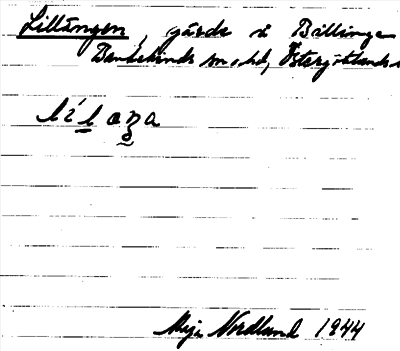 Lillängen, gärde i Billinge
Bankekinds sn o hd, Östergötlands
lílaŋa
Maja Nordlund 1944